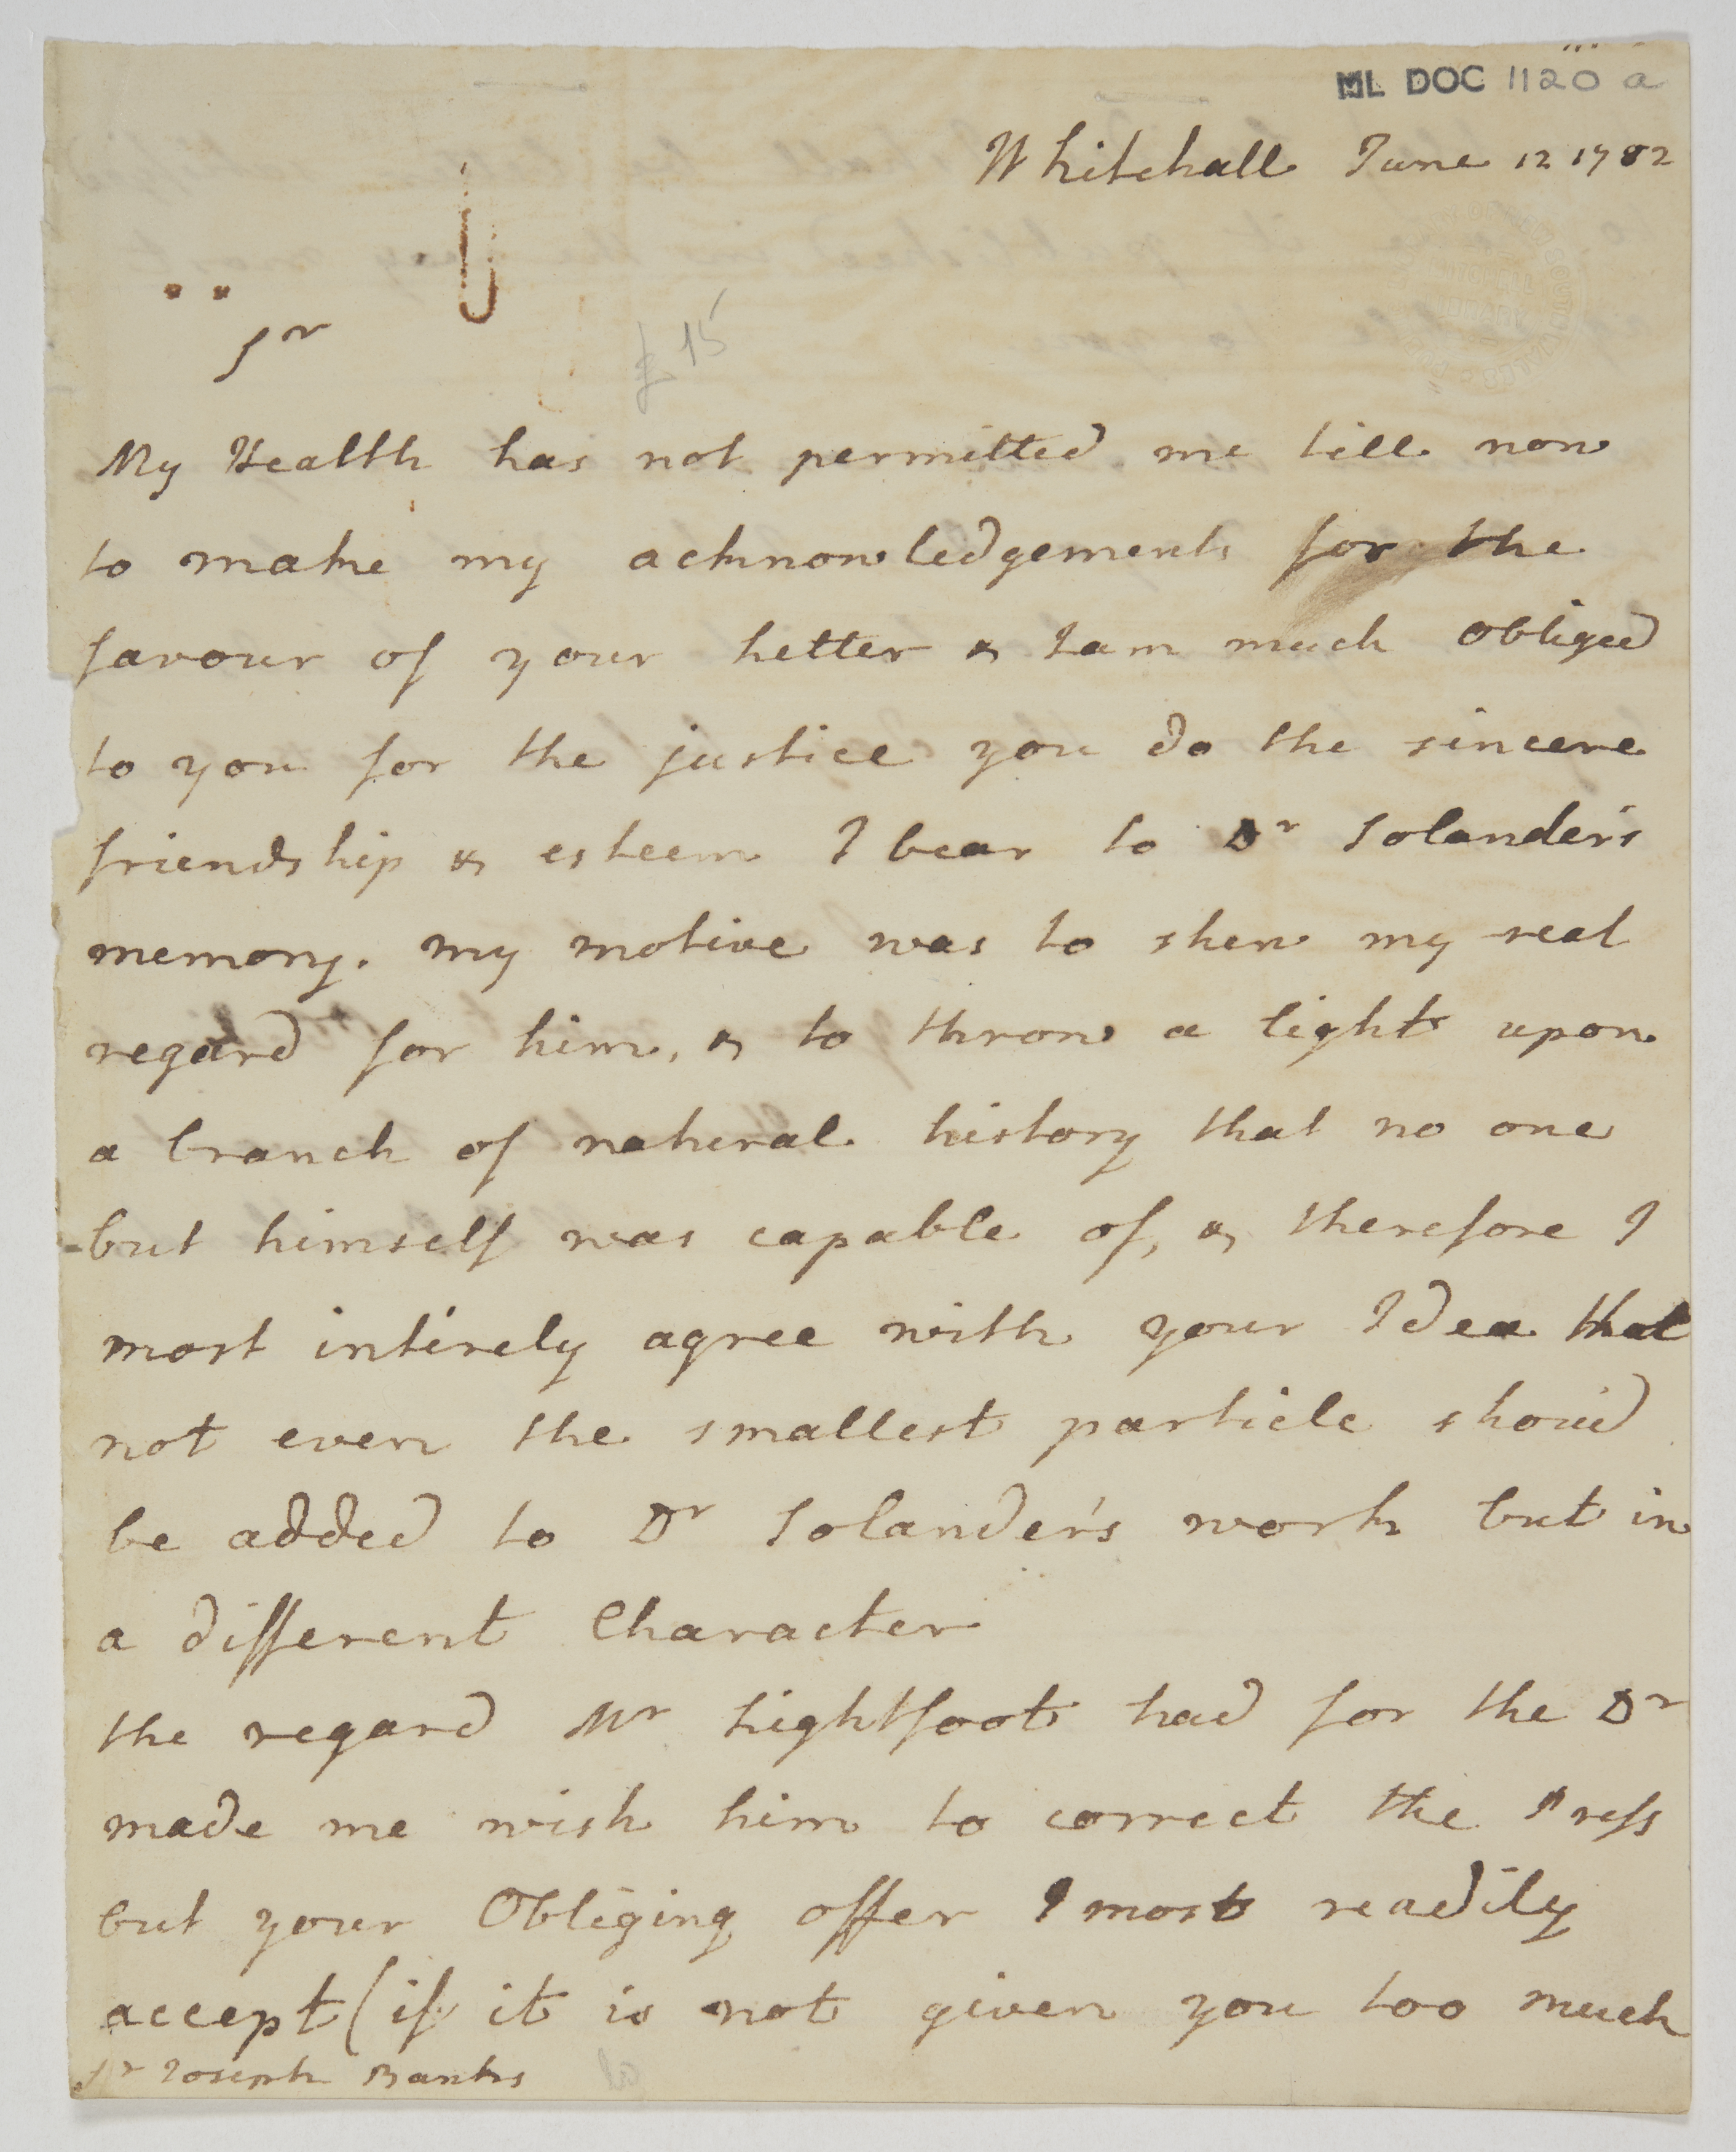 ML DOC 1120 a
Whitehall June 12 1782
Sr
£15
My Health has not permitted me till now
to make my acknowledgements for the
favour of your Letter & I am much obliged
to you for the justice you do the sincere
friendship & esteem I bear to Dr Solander's
memory. my motive was to shew my real
regard for him, & to throw a light upon
a branch of natural history that no one
but himself was capable of, & therefore I
most intirely agree with your Idea that
not even the smallest particle shou'd
be added to Dr Solander's work but in
a different Character
the regard Mr Lightfoot had for the Dr
made me wish him to correct the Press
but your Obliging offer I most readily
accept (if it is not given you too much
Sr Joseph Banks